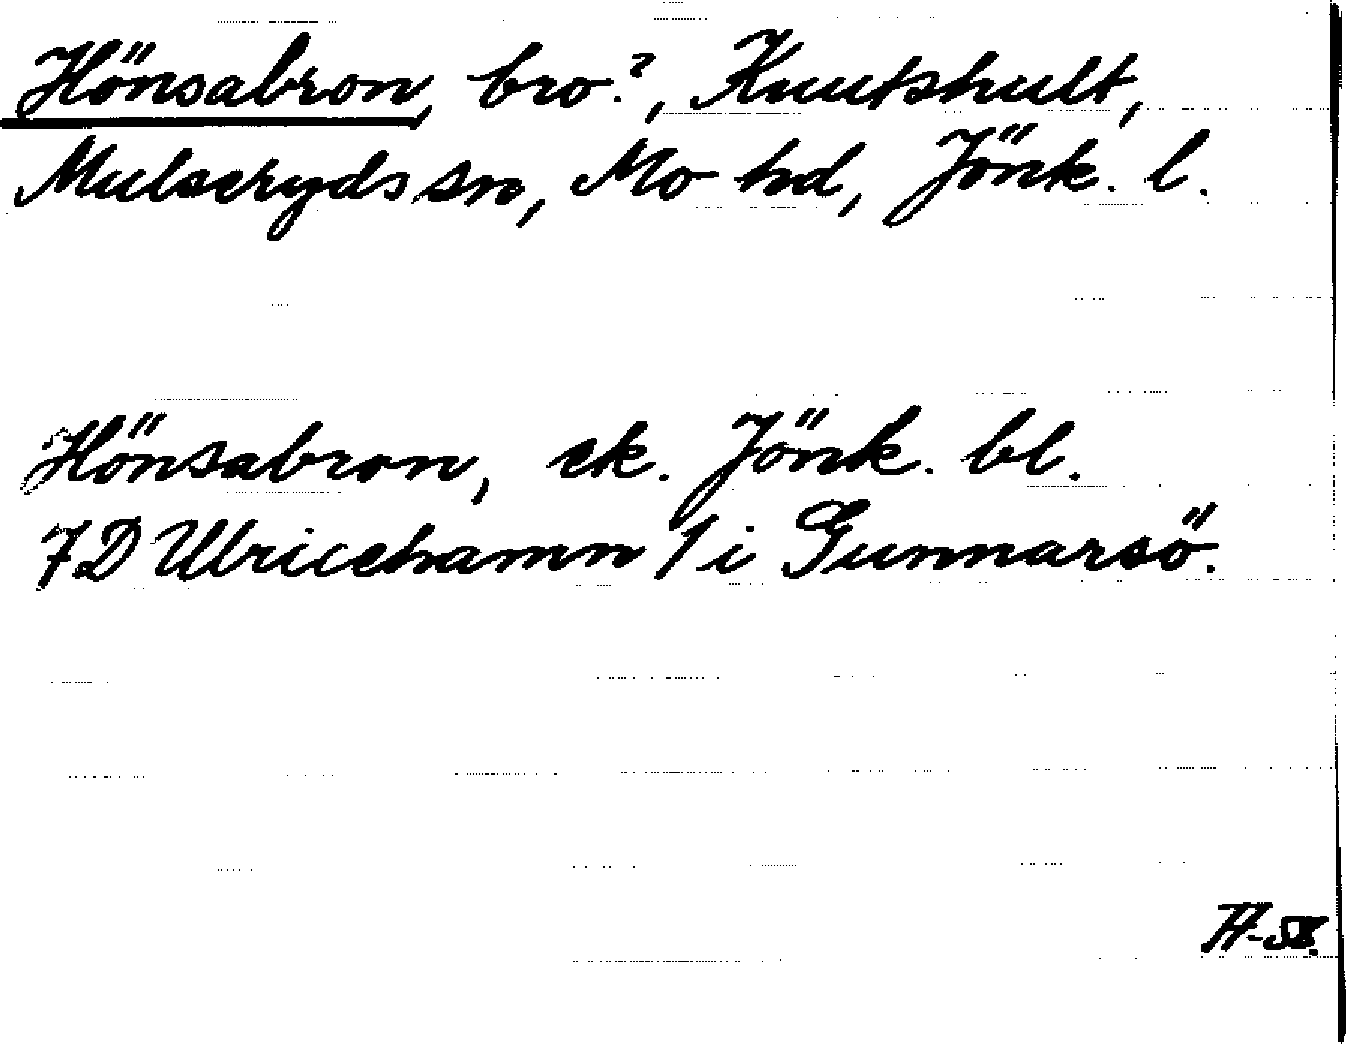 Hönsabron, bro?, Knutshult,
Mulseryds sn, Mo hd, Jönk. l.
Hönsabron, ek. Jönk. bl.
7D Ulricehamn / i Gunnarsö.